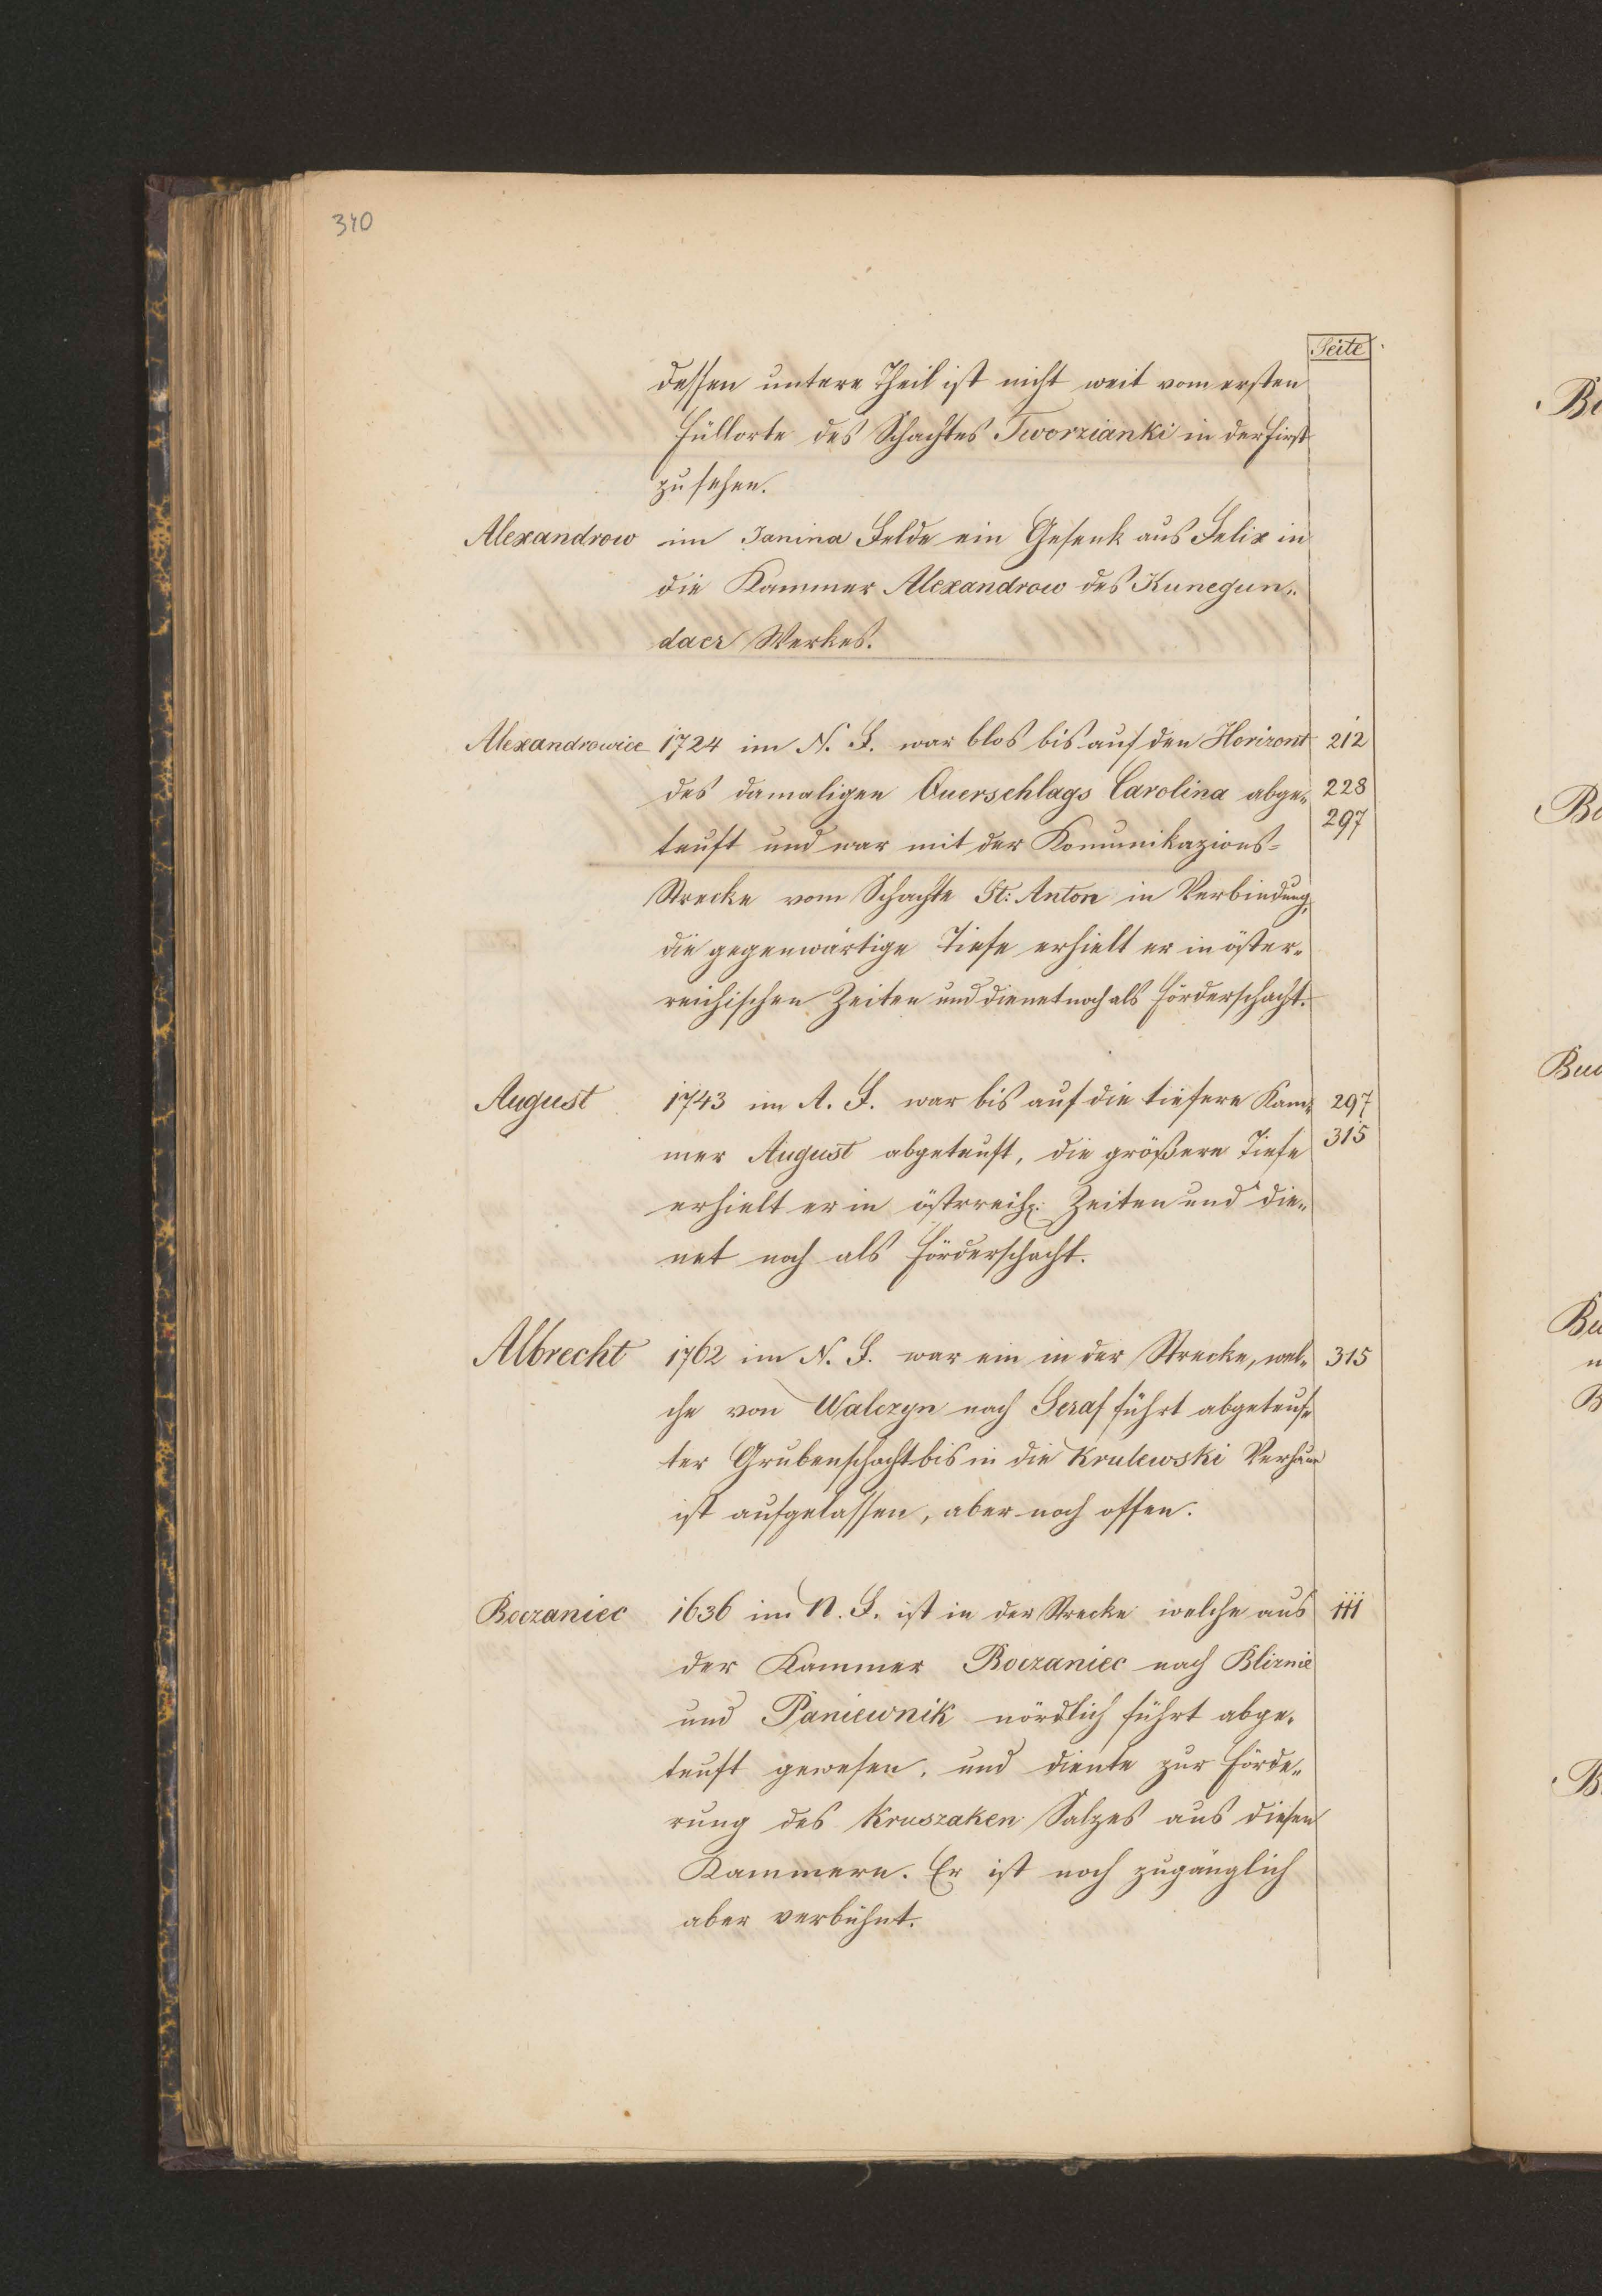 340
Seite
dessen untere Theil ist nicht weit vom ersten
Füllorte des Schachtes Tworzianki in der First
zu sehen.
Alexandrow im Janina Felde ein Gesenk aus Felix in
die Kammer Alexandrow des Kunegun„
daer Werkes.
Alexandrowice 1724 im N. F. war blos bis auf den Horizont 212
des damaligen Querschlags Carolina abge„ 228
297
teuft und war mit der Komunikazions-
Strecke vom Schachte St: Anton in Verbindung,
die gegenwärtige Tiefe erhielt er in öster„
reichischen Zeiten und dienet noch als Förderschacht.
August 1743 im A. F. war bis auf die tiefere Kam„ 297
mer August abgeteuft, die größere Tiefe 315
erhielt er in östrreich: Zeiten und die„
net noch als Förderschacht.
Albrecht 1762 im N. F. war ein in der Strecke, wel„ 315
che von Walczyn nach Seraf führt abgeteuf„
ter Grubenschacht bis in die Krulewski Verhaue
ist aufgelassen, aber noch offen.
Boczaniec 1636 im N. F. ist in der Strecke welche aus 111
der Kammer Boczaniec nach Blirnie
und Paniewnik nördlich führt abge„
teuft gewesen, und diente zur Förde„
rung des Kruszaken Salzes aus diesen
Kammern. Er ist noch zugänglich
aber verbühnt.